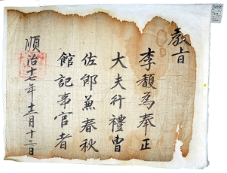 教旨
李馥為奉正
大夫行禮曹
佐郎兼春秋
館記事官者
順治十一年十二月十二日